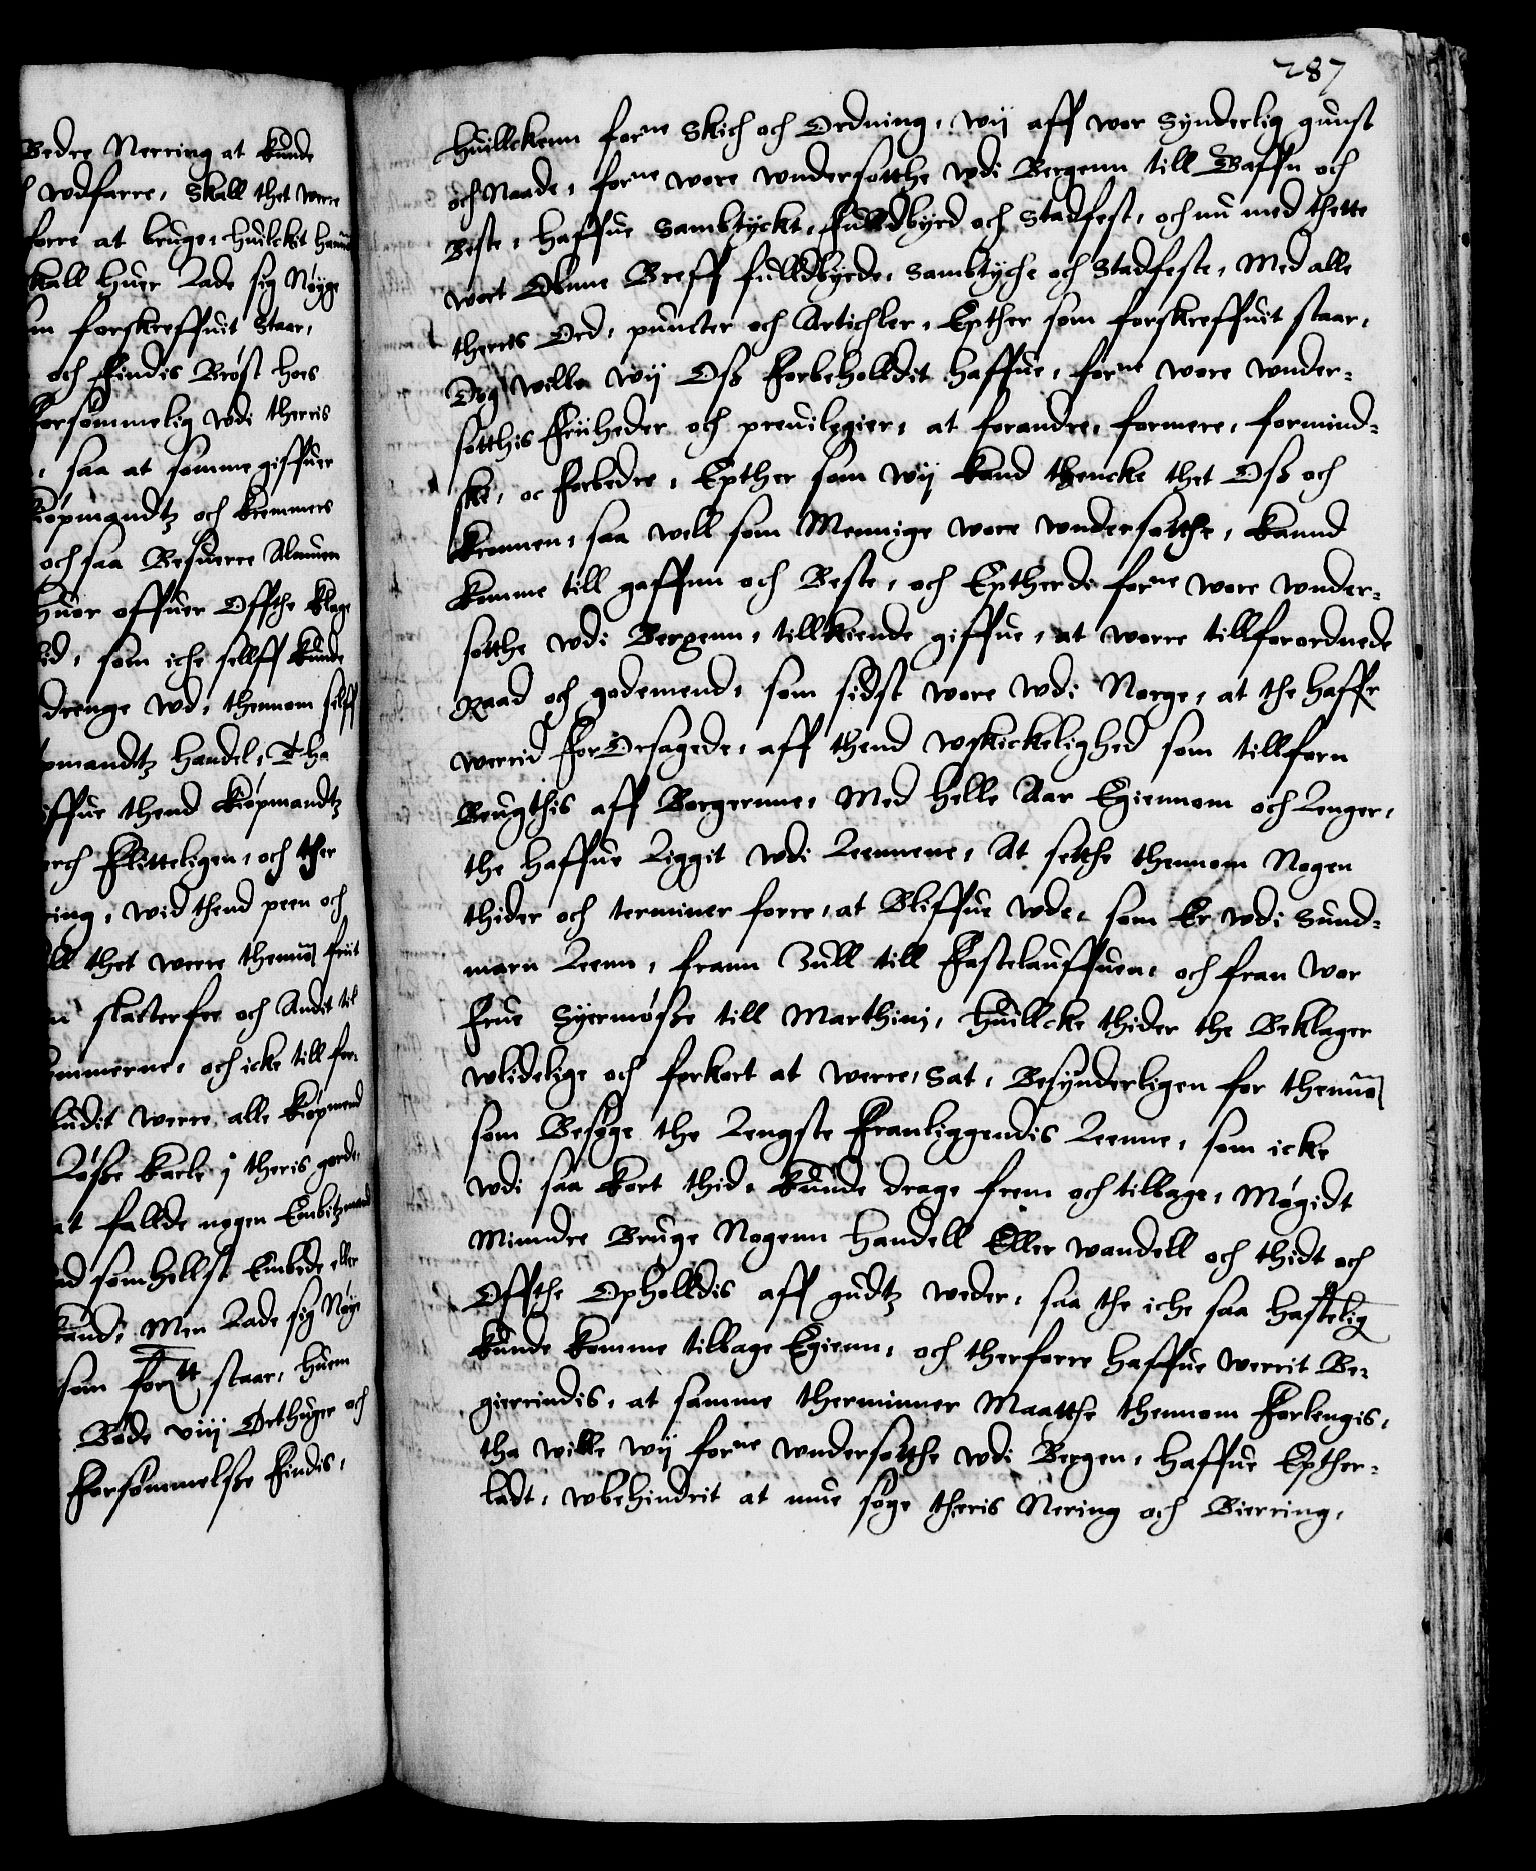 Bedre Nerring at kunde
wdfarre, Skall thet were
forre at bruge, huilckit
kall huer Lade sig Nøyge
forskreffuit Staar,
och Findis Brøst hoes
Forsømmelig wdi therris
, saa at somme giffuer
kiøpmandtz och kremmers
och saa Besuerre Almuen
huor offuer Offthe klage
som iche sellff kunde
drenge wd, thennom selff
handel, Tha
thend kiøpmandtz
Flitteligen, och ther
wid thend peen och
thet were
skatterfee och Andit til
och icke till for-
werre alle kiøpmend
Løsse karle y theris gorde,
at fallde nogen
somhellst Embede eller
Men Lade sig Nøye
som forn{tt} staar, huem
Bøde viij Ørthuger och
Forsømmelsse Findis,
287
Huillckenn forne Skich och Ordning, wij aff wor Synderlig gunst
och Naade, forne wore wndersotthe wdi Bergenn till Gaffn och
Beste, haffue Sambtyckt, Fulldbyrd och Stadfest, och nu med thette
wort Obnne Breff fulldbyrde, Sambtyche och Stadfeste, Med alle
therris Ord, puncter och Artichler, Epther som forskreffuit staar,
Dog wille wij Oss Forbeholldit haffue, forne wore wnder-
sotthis Friiheder och preuilegier, at forandre, formere, formind-
ske, oc forbedre, Epther som wij kand thencke thet Oss och
kronnen, saa well som Mennige wore wndersotthe, kannd
komme till gaffnn och Beste, och Eptherdi forne wore wnder-
sotthe wdi Bergenn, tillkiende giffue, at worre tillforordnede
Raad och godemend, som sidst wore wdi Norge, at the haffr
werrid ForOrsagede, aff thend wskickelighed som tillforn
Brugthis aff Borgernne, Med helle Aar Egiennom och Lenger,
the haffue Liggit wdi Leennene, At setthe thennom Nogen
thider och terminer forre, at Bliffue wde, som Er wdi Sund-
marn Leenn, frann Jull till Fastelauffuen, och fran wor
Frue Syermøsse till Marthinj, Huillcke thider the Beklager
wlidelige och forkort at werre, Sat, Besynderligen for thennō
som Besøge the Lengste Franliggendis Leenne, som icke
wdi saa kort thid, kunde drage frem och tilbage, Møgidt
Minndre Bruge Nogenn Handell Eller wandell och thidt och
Offthe Opholldis aff gudtz weder, saa the iche saa hastelig
kunde komme tilbage Egienn, och therforre haffue werrit Be-
gierrindis, at samme therminner Maatthe thennom Forlengis,
tha wille wij forne wndersotthe wdi Bergen, haffue Epther-
ladt, wbehindrit at mue søge theris Nering och Bierring,